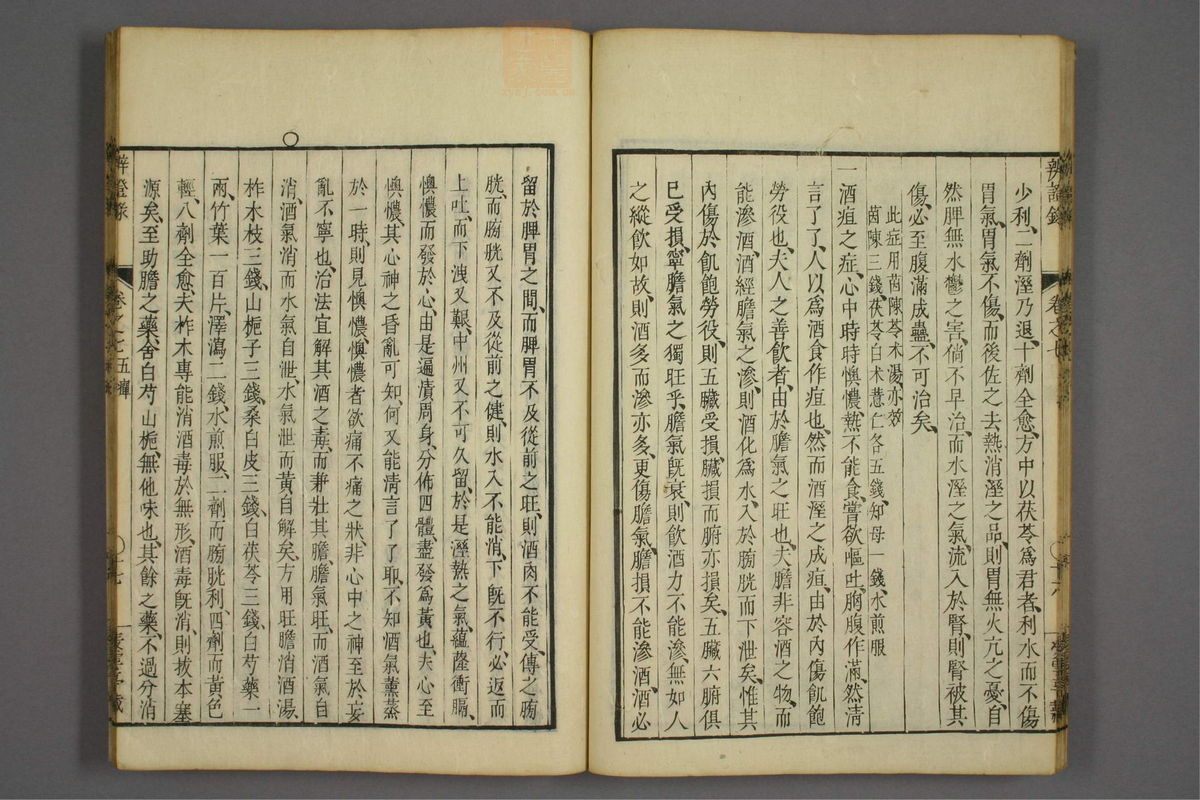 少利、二劑溼乃退、十劑全愈、方中以茯苓爲君者、利水而不傷
胃氣、胃氣不傷、而後佐之去熱消溼之品、則胃無火亢之憂、自
然脾無水鬱之害、倘不早治、而水溼之氣、流入於腎、則腎被其
傷、必至腹滿成蠱、不可治矣、
此症用茵陳苓术湯、亦效
茵陳三錢、茯苓白术薏仁各五錢、知母一錢、水煎服
一酒疸之症、心中時時懊憹、熱不能食、嘗欲嘔吐、胸腹作滿、然淸
言了了、人以爲酒食作疸也、然而酒溼之成疸、由於內傷飢飽
勞役也、夫人之善飮者、由於膽氣之旺也、夫膽非容酒之物、而
能滲酒、酒經膽氣之滲、則酒化爲水、入於膀胱而下泄矣、惟其
內傷於飢飽勞役、則五臟受損、臟損而腑亦損矣、五臟六腑俱
已受損、寧膽氣之獨旺乎、膽氣旣衰、則飮酒力不能滲、無如人
之縱飮如故、則酒多而滲亦多、更傷膽氣、膽損不能滲酒、酒必
辨證錄
卷之七
十六
留於脾胃之間、而脾胃不及從前之旺、則酒肉不能受、傳之膀
胱、而膀胱又不及從前之健、則水入不能消、下旣不行、必返而
上吐、而下洩又艱、中州又不可久留、於是溼熱之氣、蘊隆衝膈、
懊憹而發於心、由是遍漬周身、分佈四體、盡發爲黃也、夫心至
懊憹、其心神之昏亂可知、何又能淸言了了耶、不知酒氣薰蒸
於一時、則見懊憹、懊憹者、欲痛不痛之狀、非心中之神至於妄
亂不寧也、治法宜解其酒之毒、而兼壯其膽、膽氣旺、而酒氣自
消、酒氣消而水氣自泄、水氣泄而黃自解矣、方用旺膽消酒湯、
柞木枝三錢、山梔子三錢、桑白皮三錢、白茯苓三錢、白芍藥一
兩、竹葉一百片、澤瀉二錢、水煎服、二劑而膀胱利、四劑而黃色
輕、八劑全愈、夫柞木專能消酒毒於無形、酒毒旣消、則拔本塞
源矣、至助膽之藥、舍白芍山梔、無他味也、其餘之藥、不過分消
辨證錄
卷之七 五癉